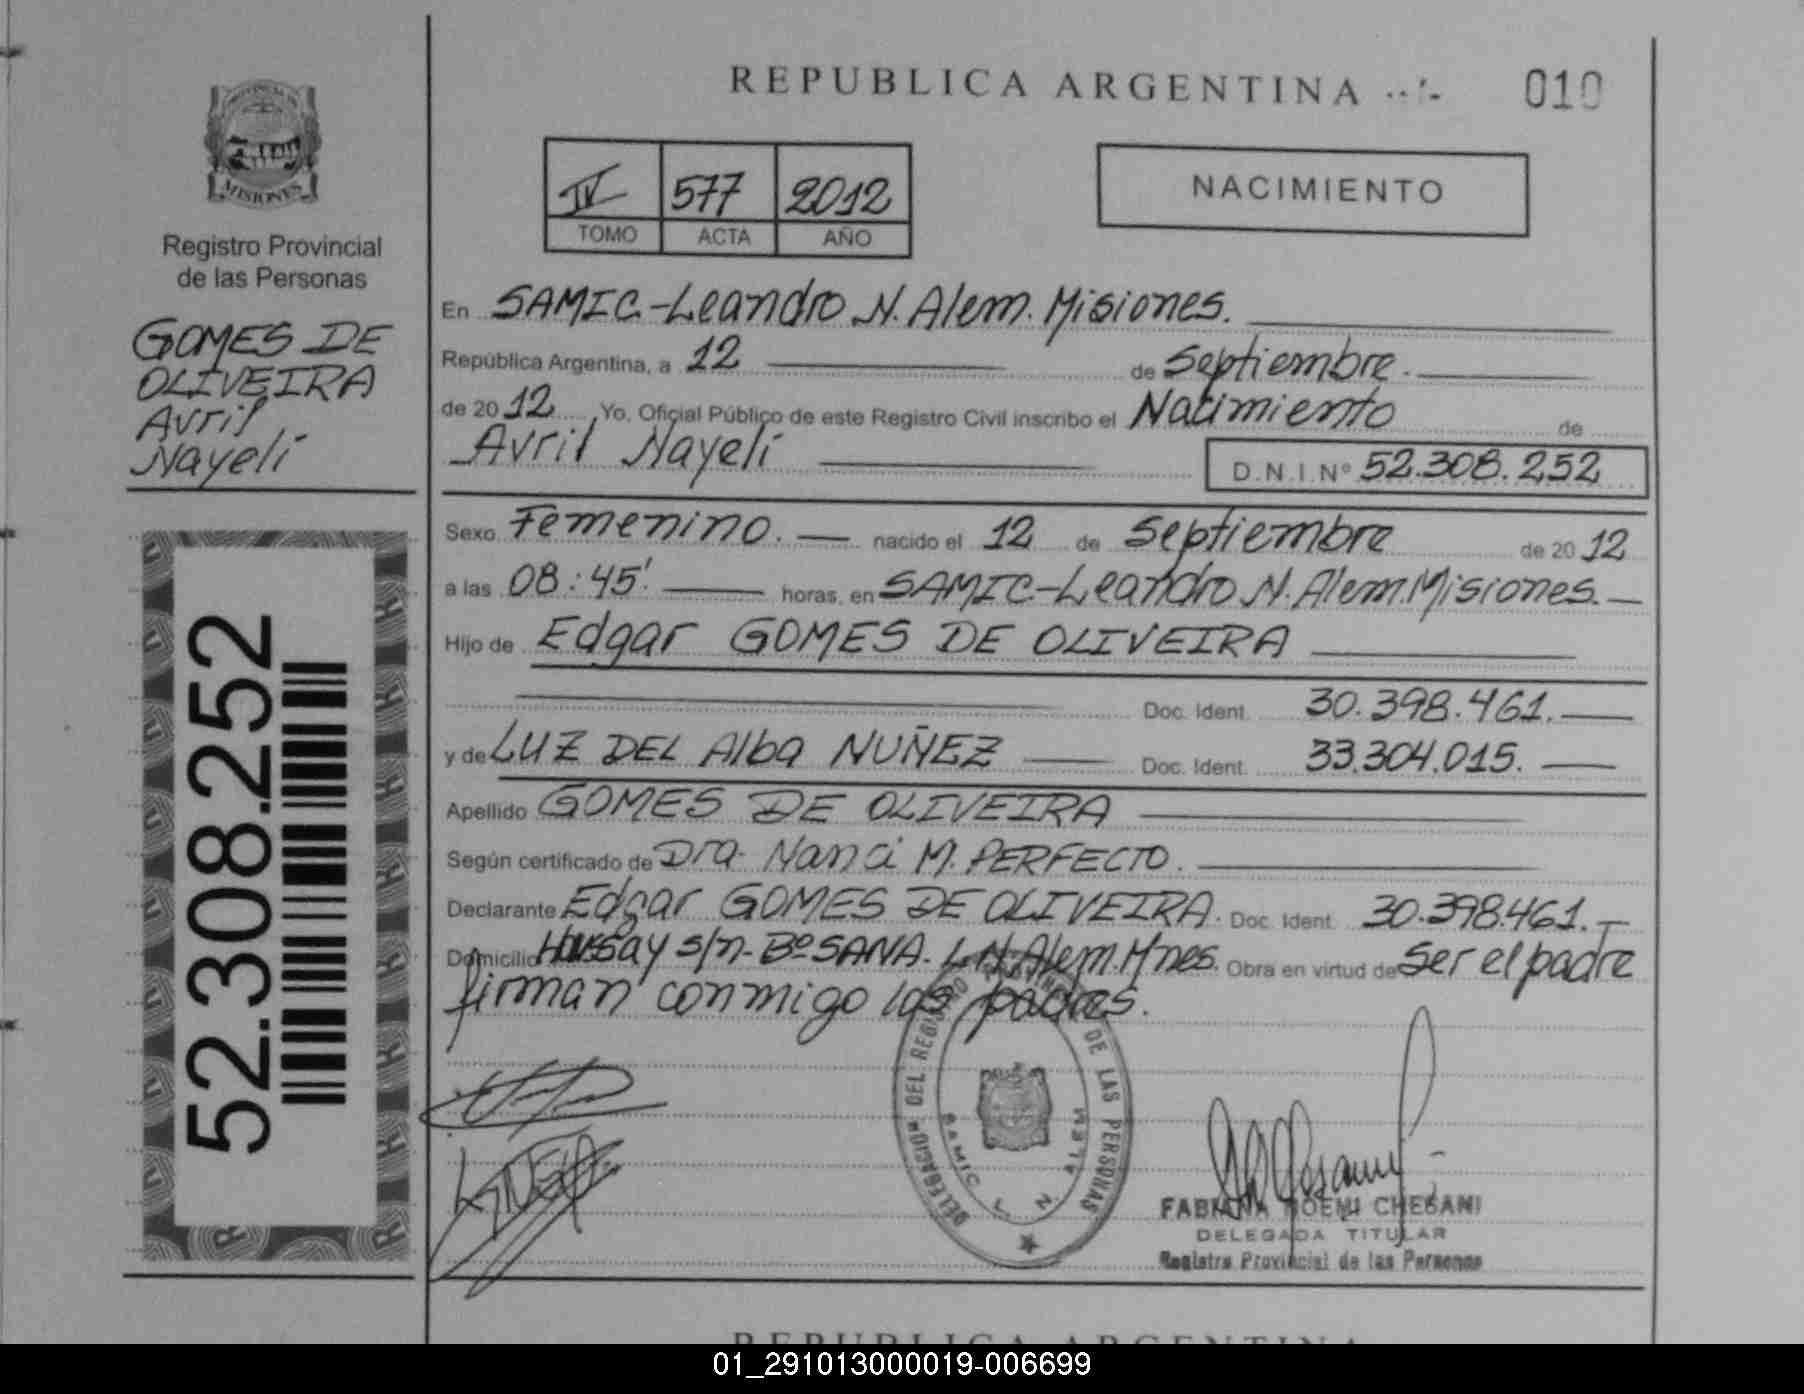 REPUBLICA ARGENTINA
010
PROVINCIA DE
MISIONES
Registro Provincial
de las Personas
GOMES DE
OLIVEIRA
Avril
Nayelí
52.308.252
IV 577 2012
TOMO ACTA AÑO
NACIMIENTO
En SAMIC-Leandro N. Alem. Misiones.
República Argentina, a 12 de Septiembre.
de 2012 Yo, Oficial Público de este Registro Civil inscribo el Nacimiento de
Avril Nayelí D.N.I.Nº 52.308.252
Sexo Femenino. nacido el 12 de Septiembre de 2012
a las 08:45' horas, en SAMIC-Leandro N. Alem. Misiones.
Hijo de Edgar GOMES DE OLIVEIRA
Doc. Ident. 30.398.461.
y de LUZ DEL Alba NUÑEZ Doc. Ident. 33.304.015.
Apellido GOMES DE OLIVEIRA
Según certificado de Dra. Nanci M. PERFECTO.
Declarante Edgar GOMES DE OLIVEIRA. Doc. Ident. 30.398.461.
Domicilio s/n- Bº SANA. L.N. Alem. Mnes. Obra en virtud de Ser el padre
firman conmigo los padres.
DELEGACION DEL REGISTRO PROVINCIAL DE LAS PERSONAS
SAMIC L. N. ALEM
FABIANA NOEMI CHESANI
DELEGADA TITULAR
Registro Provincial de las Personas
REPUBLICA ARGENTINA
01_291013000019-006699